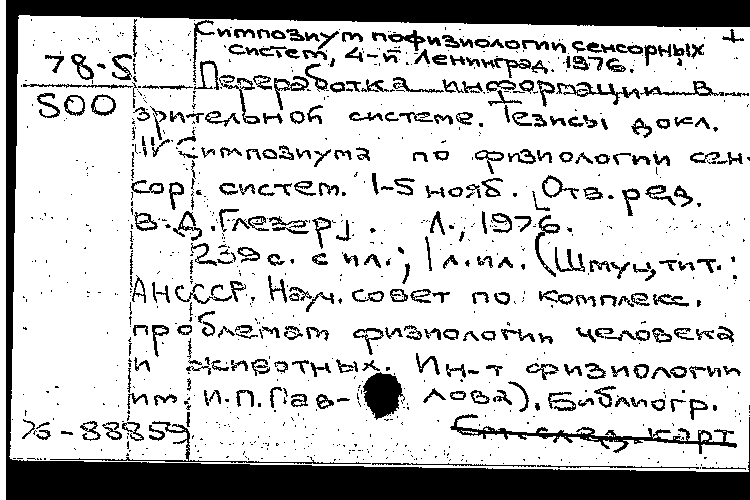 Симпозиум по физиологии сенсорных +
систем, 4-й. Ленинград. 1976.
78-5
Переработка информации в
500
зрительной системе. Тезисы докл.
IV Симпозиума по физиологии сен-
сор. систем. 1-5 нояб. [Отв. ред.
В.Д. Глезер]. Л., 1976.
239 с. с ил.; 1 л. ил. (Шмуцтит.:
АН СССР. Науч. совет по комплекс.
проблемам физиологии человека
и животных. Ин-т физиологии
им. И.П. Пав- лова). Библиогр.
76-88859
См. след. карт